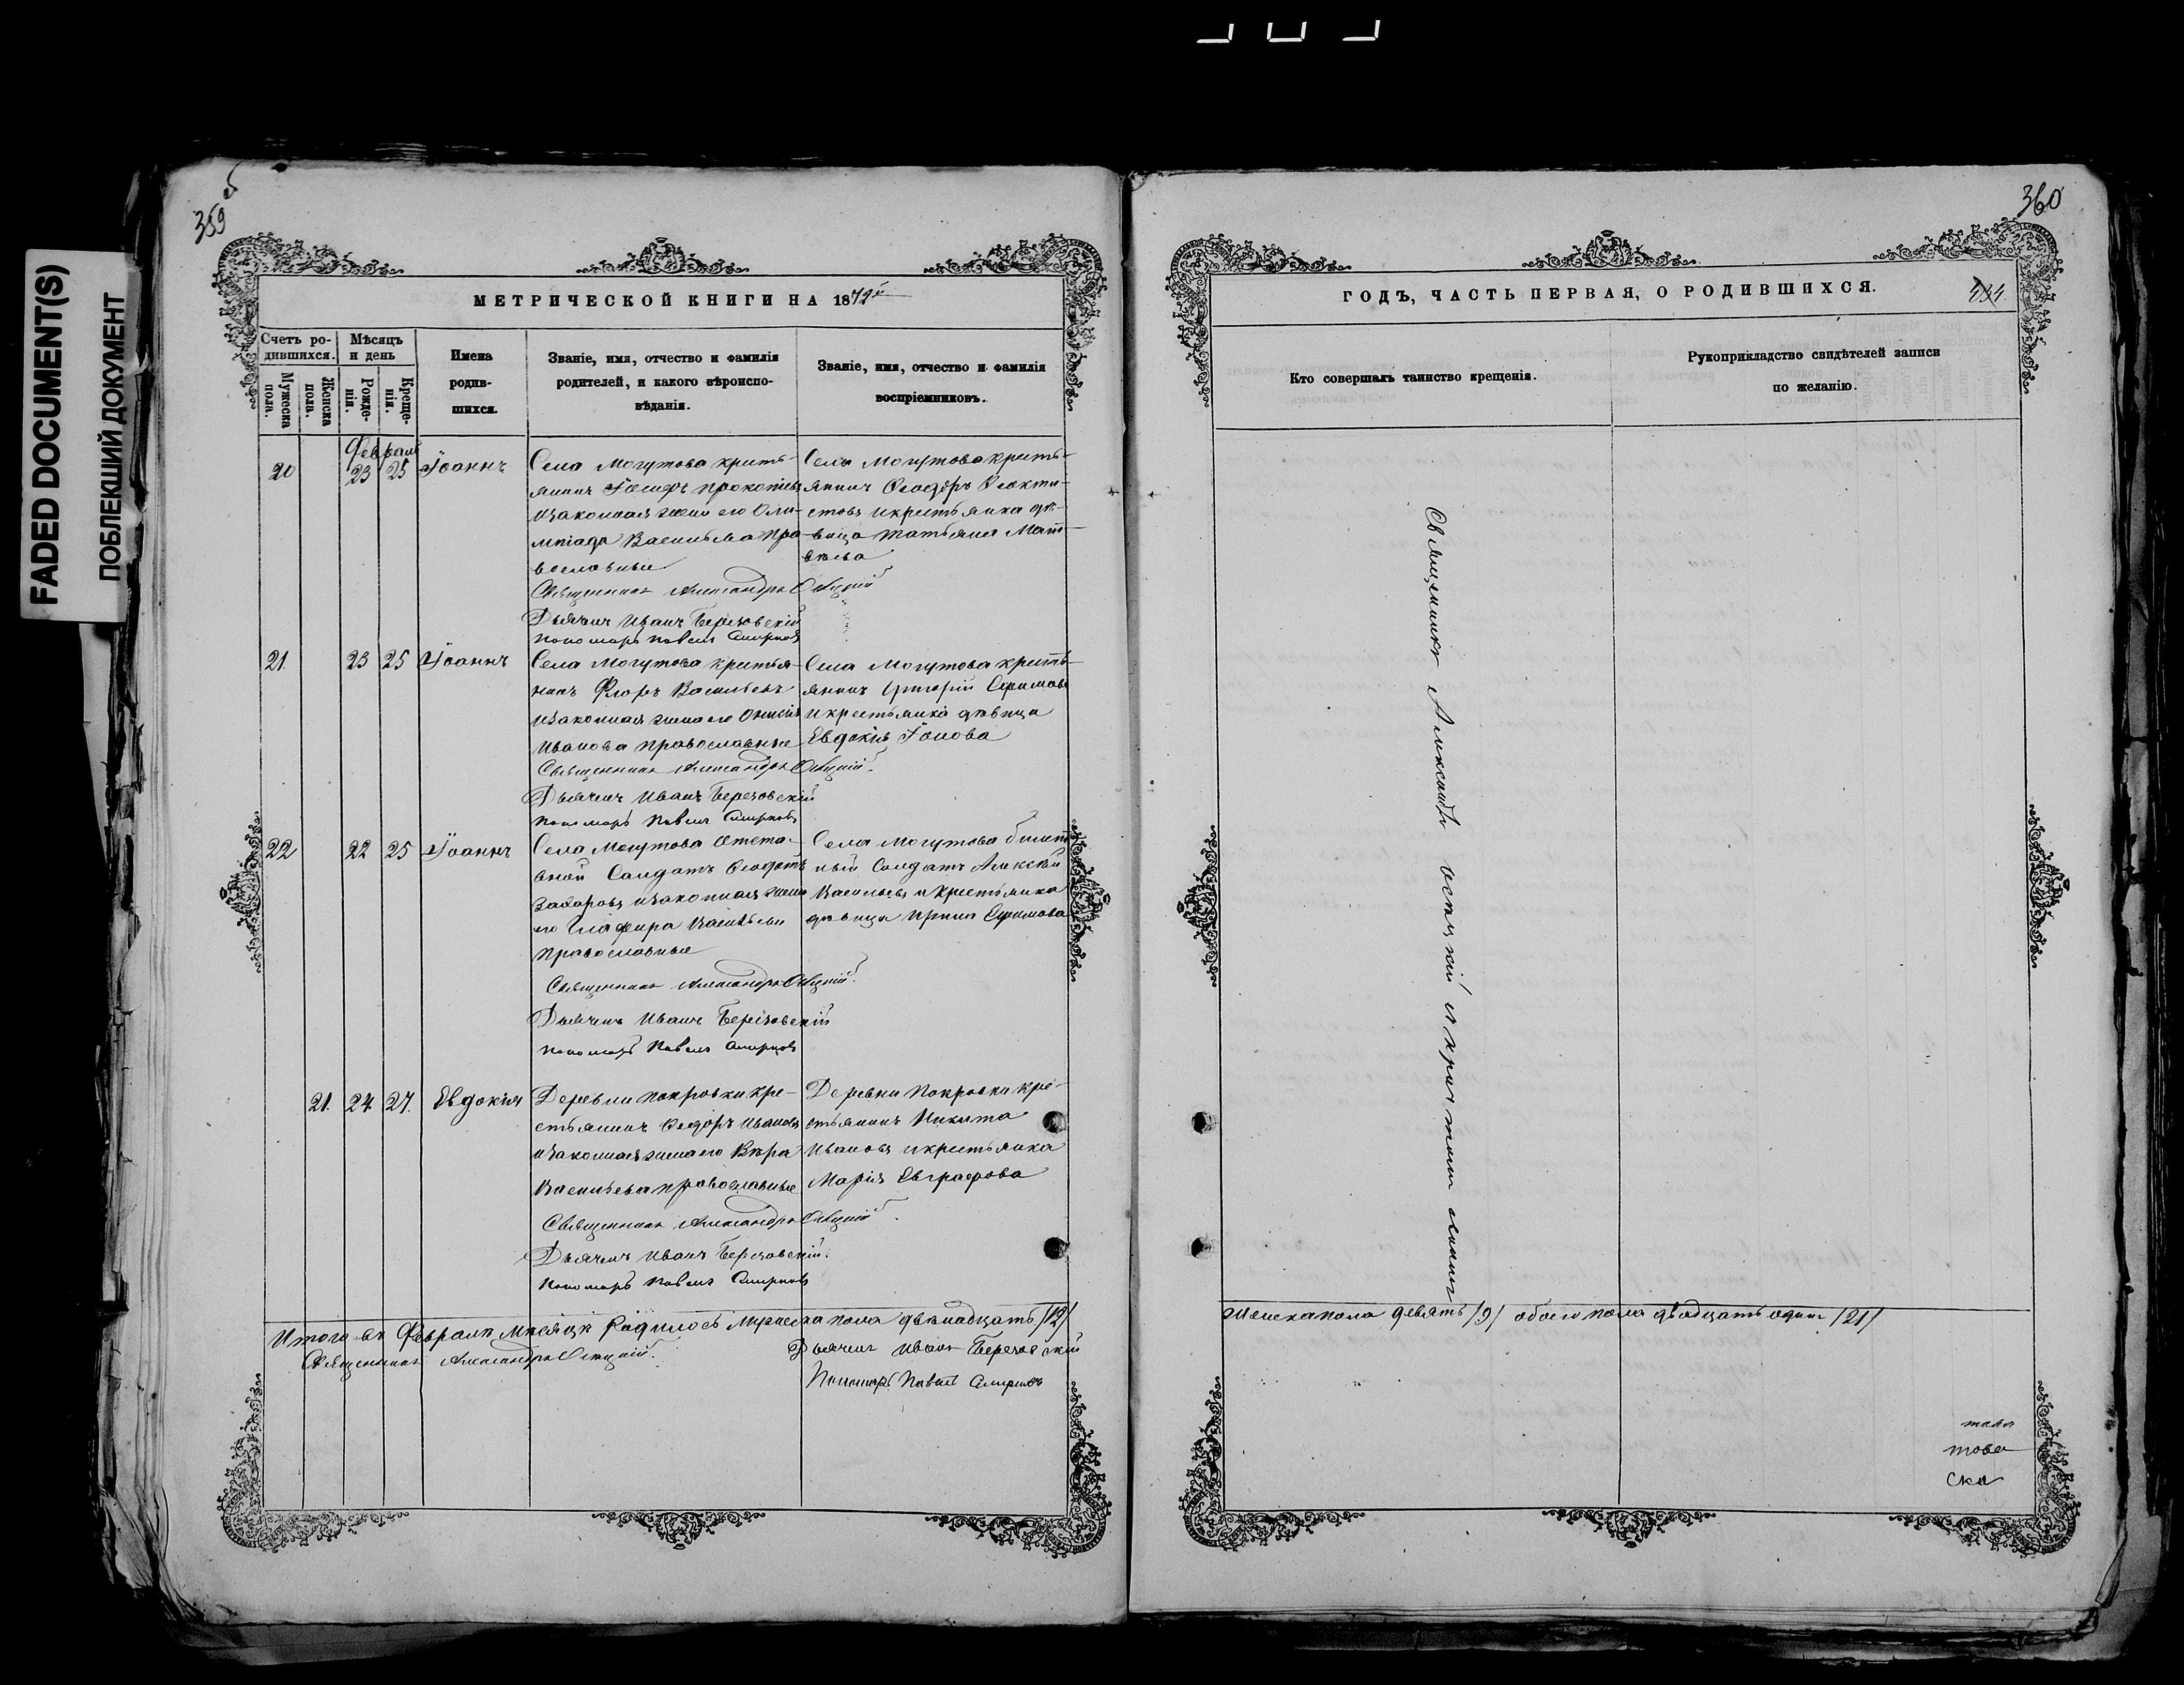 FADED DOCUMENT(S)
ПОБЛЕКШИЙ ДОКУМЕНТ
359
МЕТРИЧЕСКОЙ КНИГИ НА 1879й
Счетъ ро-
дившихся.
Мѣсяцъ
и день
Мужеска
пола.
Женска
пола.
Рожде-
нія.
Креще-
нія.
Имена
родив-
шихся.
Званіе, имя, отчество и фамилія
родителей, и какого вѣроиспо-
вѣданія.
Званіе, имя, отчество и фамилія
воспріемниковъ.
Февраль
20 23 25 Іоаннъ
Села Могутова кресть-
янинъ Іосифъ Прокопьевъ
изаконная жена его Оли-
мпіада Васильева пра-
вославные
Священникъ Александръ
Дьячекъ Иванъ Березовскій
пономарь Павелъ Смирновъ
Села Могутова кресть-
янинъ Ѳеодоръ Ѳеокти-
стовъ икрестьянка дѣ-
вица Татьяна Мат-
вѣева
21. 23 25 Іоаннъ
Села Могутова крестья-
нинъ Флоръ Васильевъ
изаконная жена его Онисія
Иванова православные
Священникъ Александръ
Дьячекъ Иванъ Березовскій
пономарь Павелъ Смирновъ
Села Могутова кресть-
янинъ Григорій Ефимовъ
икрестьянка дѣвица
Евдокія Іонова
22 22 25 Іоаннъ
Села Могутова Отста-
вной Солдатъ Ѳеодотъ
Захаровъ изаконная жена
его Глафира Васильева
православные
Священникъ Александръ
Дьячекъ Иванъ Березовскій
пономарь Павелъ Смирновъ
Села Могутова билет-
ный Солдатъ Алексѣй
Васильевъ икрестьянка
дѣвица Ирина Ефимова
21. 24 27. Евдокія
Деревни Покровки кре-
стьянинъ Ѳедоръ Ивановъ
изаконная жена его Вѣра
Васильева православные
Священникъ Александръ
Дьячекъ Иванъ Березовскій.
пономарь Павелъ Смирновъ
Деревни Покровки кре-
стьянинъ Никита
Ивановъ икрестьянка
Марія Евграфова
Итого въ Февралѣ мѣсяцѣ родилось Мужеска пола двѣнадцать /12/
Священникъ Александръ
Дьячекъ Иванъ Березовскій
Пономарь Павелъ Смирновъ
360
ГОДЪ, ЧАСТЬ ПЕРВАЯ, О РОДИВШИХСЯ.
Кто совершалъ таинство крещенія.
Рукоприкладство свидѣтелей записи
по желанію.
Священникъ Александръ
Женска пола девять /9/ обоего пола двадцать одинъ /21/
това
ска